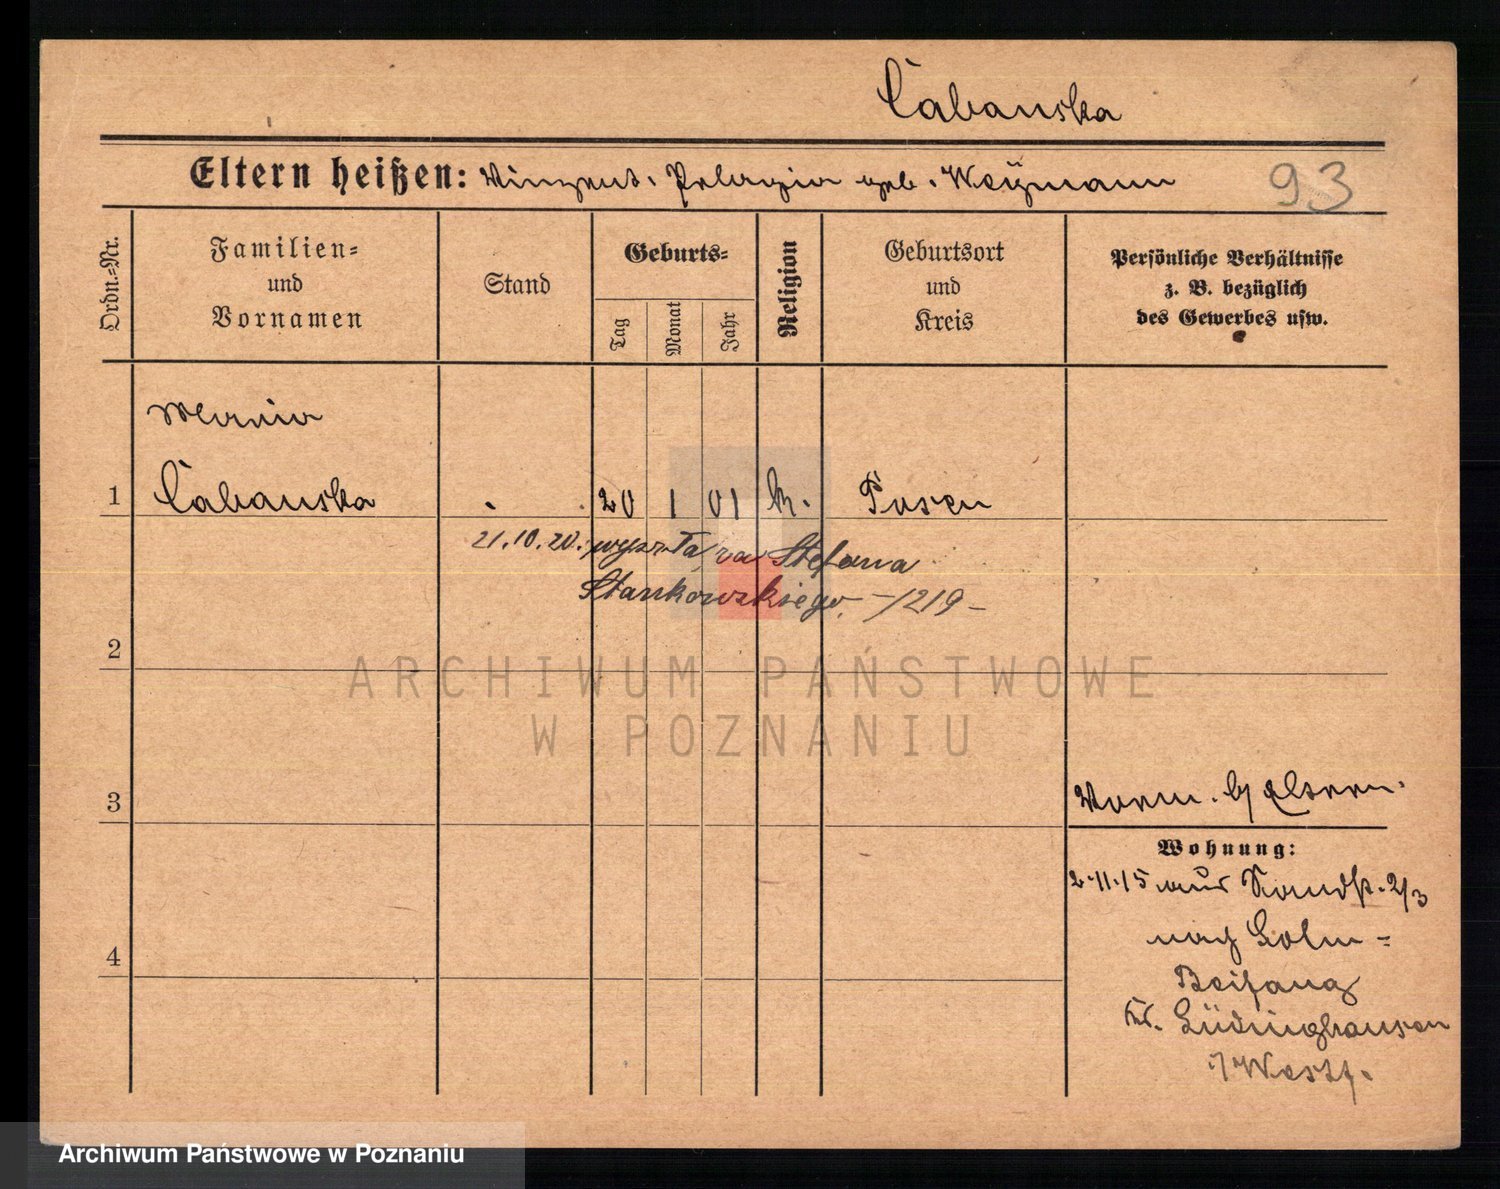 Cabanska
Eltern heißen: Vinzent. Pelagia geb. Weÿmann 93
Ordn.=Nr.
Familien=
und
Vornamen
Stand
Geburts=
Tag
Monat
Jahr
Religion
Geburtsort
und
Kreis
Persönliche Verhältnisse
z. B. bezüglich
des Gewerbes usw.
Maria
1 Cabanska 20 1 01 k. Posen
21.10.20. wyszła za Stefana
Stankowskiego. -/219-
2
ARCHIWUM PAŃSTWOWE
W POZNANIU
3
b/ Eltern.
Wohnung:
2.11.15 aus 2/3
nach
Beifang
Kr. Lüdinghausen
i/Westf.
4
Archiwum Państwowe w Poznaniu